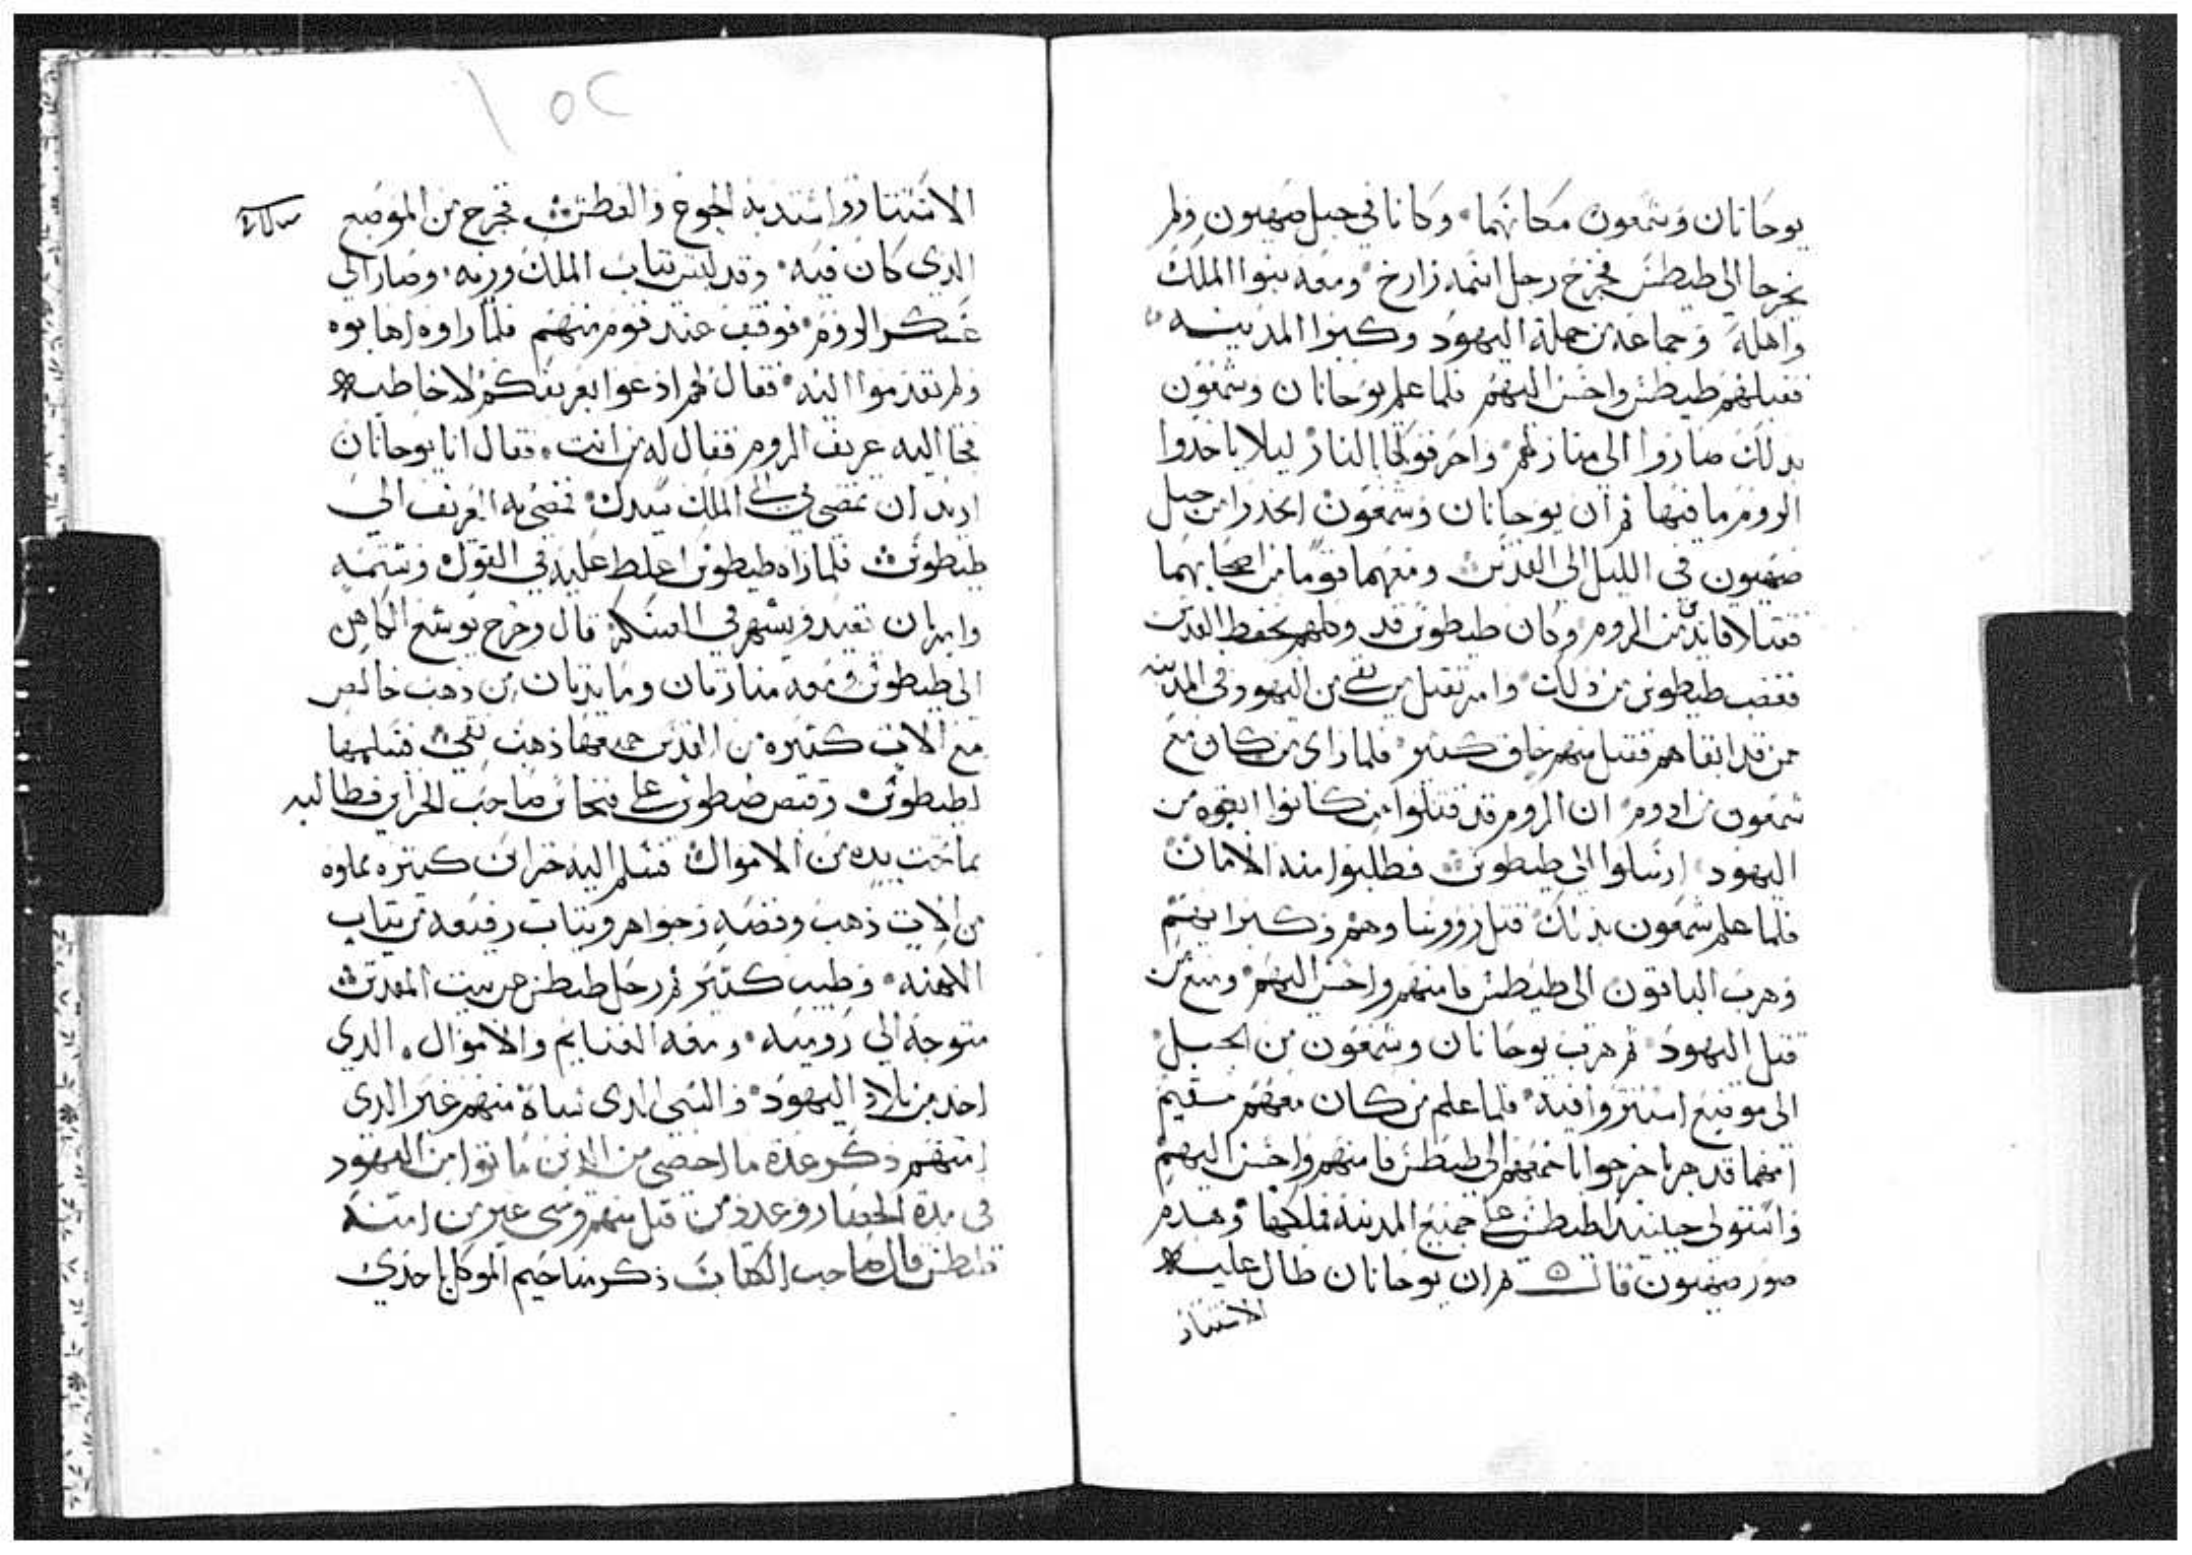 يوحانان وشمعون مكانهما وكانا في جبل صهيون ولم
يخرجا الي طيطس فخرج رجل اسمه زارخ ومعه بنوا الملك
واهله وجماعه من جملة اليهود وكبروا المدينه
فقبلهم طيطس واحسن اليهم فلما علم يوحانان وشمعون
بدلك صاروا الى منازلهم واحرقوها بالنار ليلا ياخدوا
الروم ما فيها ثم ان يوحانان وشمعون انحدرا من جبل
صهيون في الليل الى القدس ومعهما قوما من اصحابهما
فقتلا قايدين من الروم وكان طيطوس قد وكلهم بحفظ القدس
فغضب طيطوس من دلك وامر بقتل من بقي من اليهود في المدينه
ممن قد ابقاهم فقتل منهم خلق كثير فلما راى من كان مع
شمعون من ادوم ان الروم قد قتلوا من كانوا ابقوه من
اليهود ارسلوا الى طيطوس فطلبوا منه الامان
فلما علم شمعون بدلك قتل روسا وهم وكبرايهم
وهرب الباقون الى طيطس فامنهم واحسن اليهم ومنع من
قتل اليهود ثم هرب يوحانان وشمعون من الجبل
الى موضع استتروا فيه فلما علم من كان معهم مقيم
انهما قد هربا خرجوا باجمعهم الى طيطس فامنهم واحسن اليهم
واستولى حينيد طيطس على جميع المدينة فملكها وهدم
صور صهيون قال ثم ان يوحانان طال عليه
الاستتار
١٥٢
الاستتار واشتد به الجوع والعطش فخرج من الموضع
الدى كان فيه وقد لبس تياب الملك وزيه وصار الى
عسكر الروم فوقف عند قوم منهم فلما راوه اهابوه
ولم تقدموا اليه فقال لهم ادعوا بعريفكم لاخاطبه
فجا اليه عريف الروم فقال له من انت فقال انا يوحانان
اريد ان تمضى بي الى الملك سيدك فمضى به العريف الى
طيطوس فلما راه طيطوس اغلط عليه في القول وشتمه
وامر بان يقيد ويشهر في العسكر قال وخرج يوشع الكاهن
الى طيطوس ومعه منارتان ومايدتان من دهب خالص
مع الات كثيره من القدس جميعها ذهب نقي فسلمها
لطيطوس وقبض طيطوس على فنحاس صاحب الخزاين فطالبه
بما تحت يده من الاموال فسلم اليه خزاين كبيره مملوه
من الات ذهب وفضه وجواهر وتياب رفيعه من تياب
الكهنه وطيب كتير ثم رحل طيطس عن بيت المقدس
متوجه الي روميه ومعه الغنايم والاموال الدي
اخد من بلاد اليهود والسبى الدى سباه منهم غير الدى
امنهم ذكر عدة ما احصى من الدين ماتوا من اليهود
في مدة الحصار وعدد من قتل منهم وسبى غير من امنه
طيطس قال صاحب الكتاب ذكر مناحيم الموكل باحدى